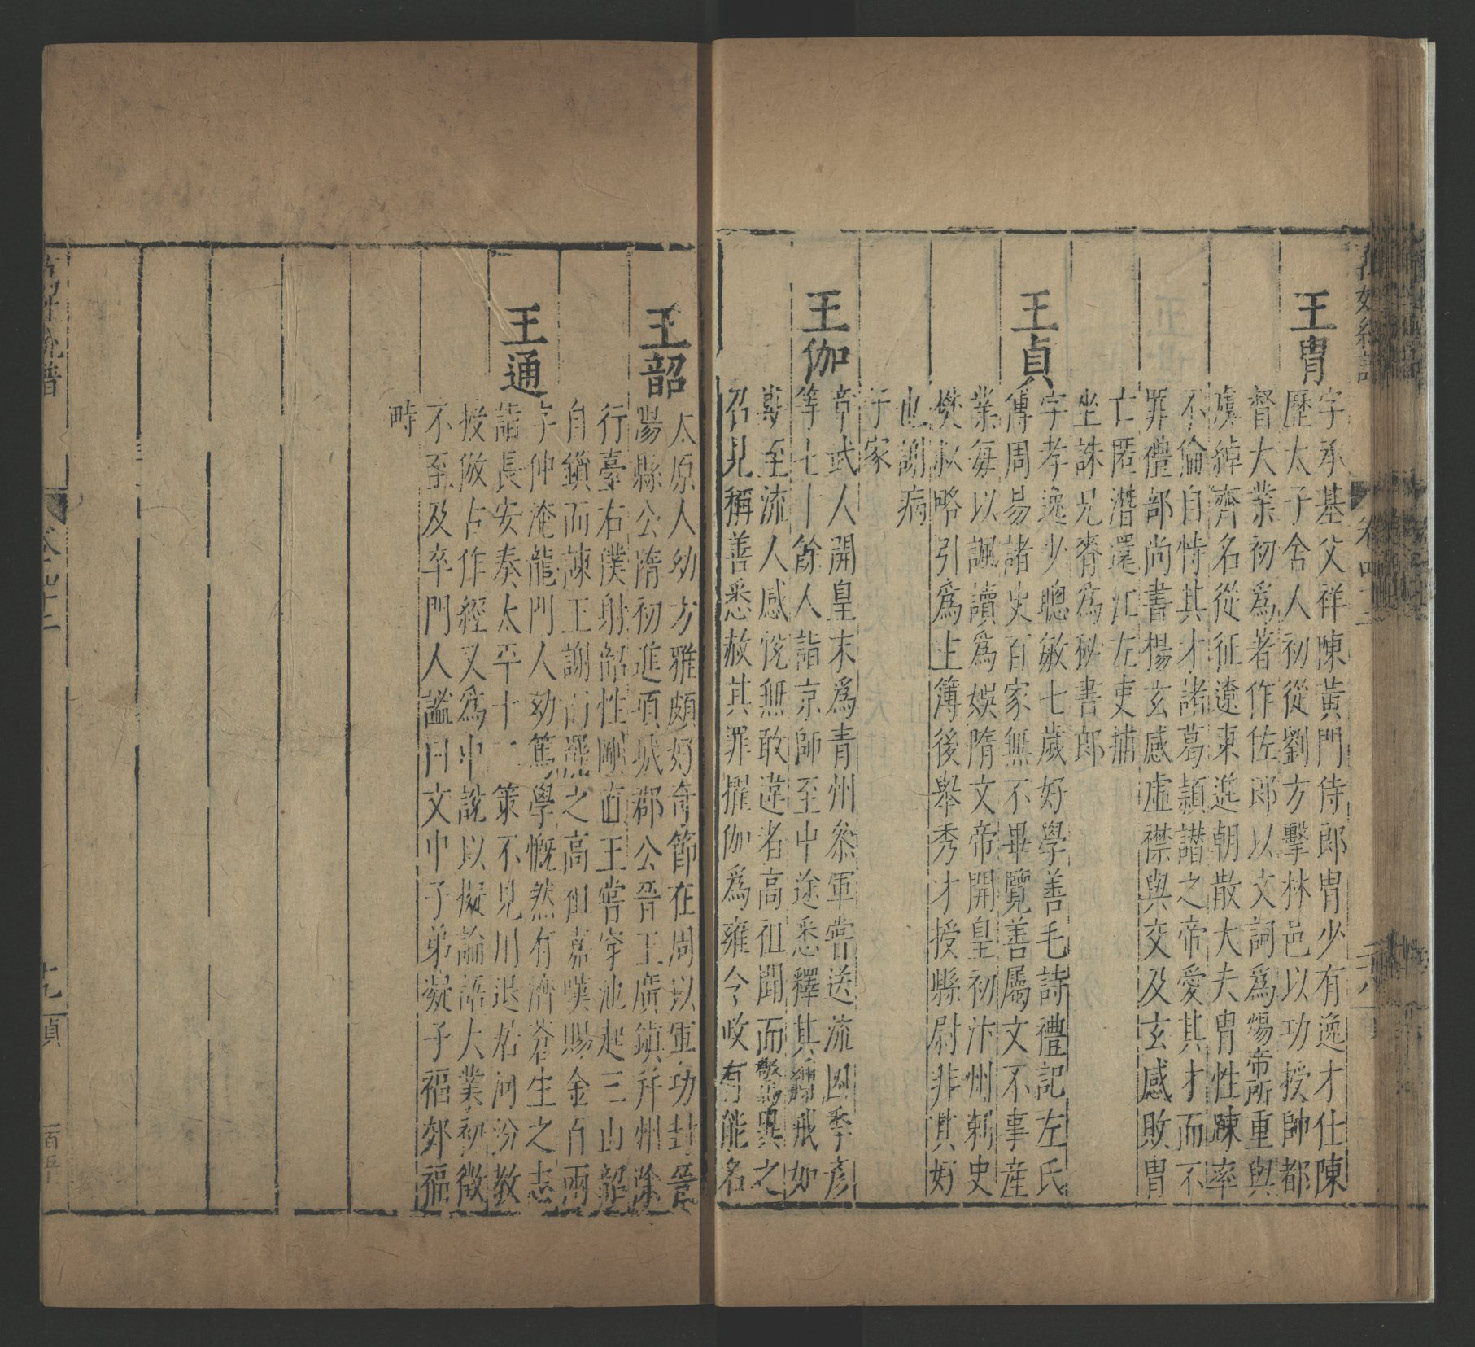 王胄
字承基父祥陳黃門侍郎胄少有逸才仕陳
歷太子舍人初從劉方擊林邑以功授帥都
督大業初爲著作佐郎以文詞爲煬帝所重與
虞綽齊名從征遼東進朝散大夫胄性踈率
不倫自恃其才諸葛頴譖之帝愛其才而不
罪禮部尚書楊玄感虛襟與交及玄感敗胄
亡匿潛還江左吏捕
坐誅兄㥞爲秘書郎
王貞
字孝逸少聰敏七歲好學善毛詩禮記左氏
傳周易諸史百家無不畢覽善屬文不事産
業每以諷讀爲娛隋文帝開皇初汴州刺史
樊叔略引爲主簿後舉秀才授縣尉非其好
也謝病
于家
王伽
章武人開皇末爲青州叅軍嘗送流囚李彥
等七十餘人詣京師至中途悉釋其戒如
期至流人感悅無敢違者高祖聞而驚異之
召見稱善悉赦其罪擢伽爲雍令政有能名
王韶
太原人幼方雅頗好奇節在周以軍功封晉
陽縣公隋初進項城郡公晉王廣鎮并州除
行臺右僕射韶性剛直王嘗穿池起三山韶
自鎖而諫王謝而罷之高祖嘉嘆賜金百兩
王通
字仲淹龍門人幼篤學慨然有濟蒼生之志
詣長安奏太平十二策不見川退居河汾教
授倣古作經又爲中說以擬論語大業初徵
不至及卒門人謚曰文中子弟凝子福郊福
畤
卷四十二